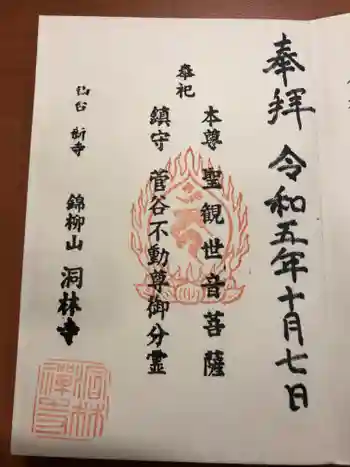 奉拝 令和五年十月七日
本尊 聖観世音菩薩
奉祀
鎮守 菅谷不動尊御分霊
仙台 新寺
錦柳山 洞林寺
洞林禅寺